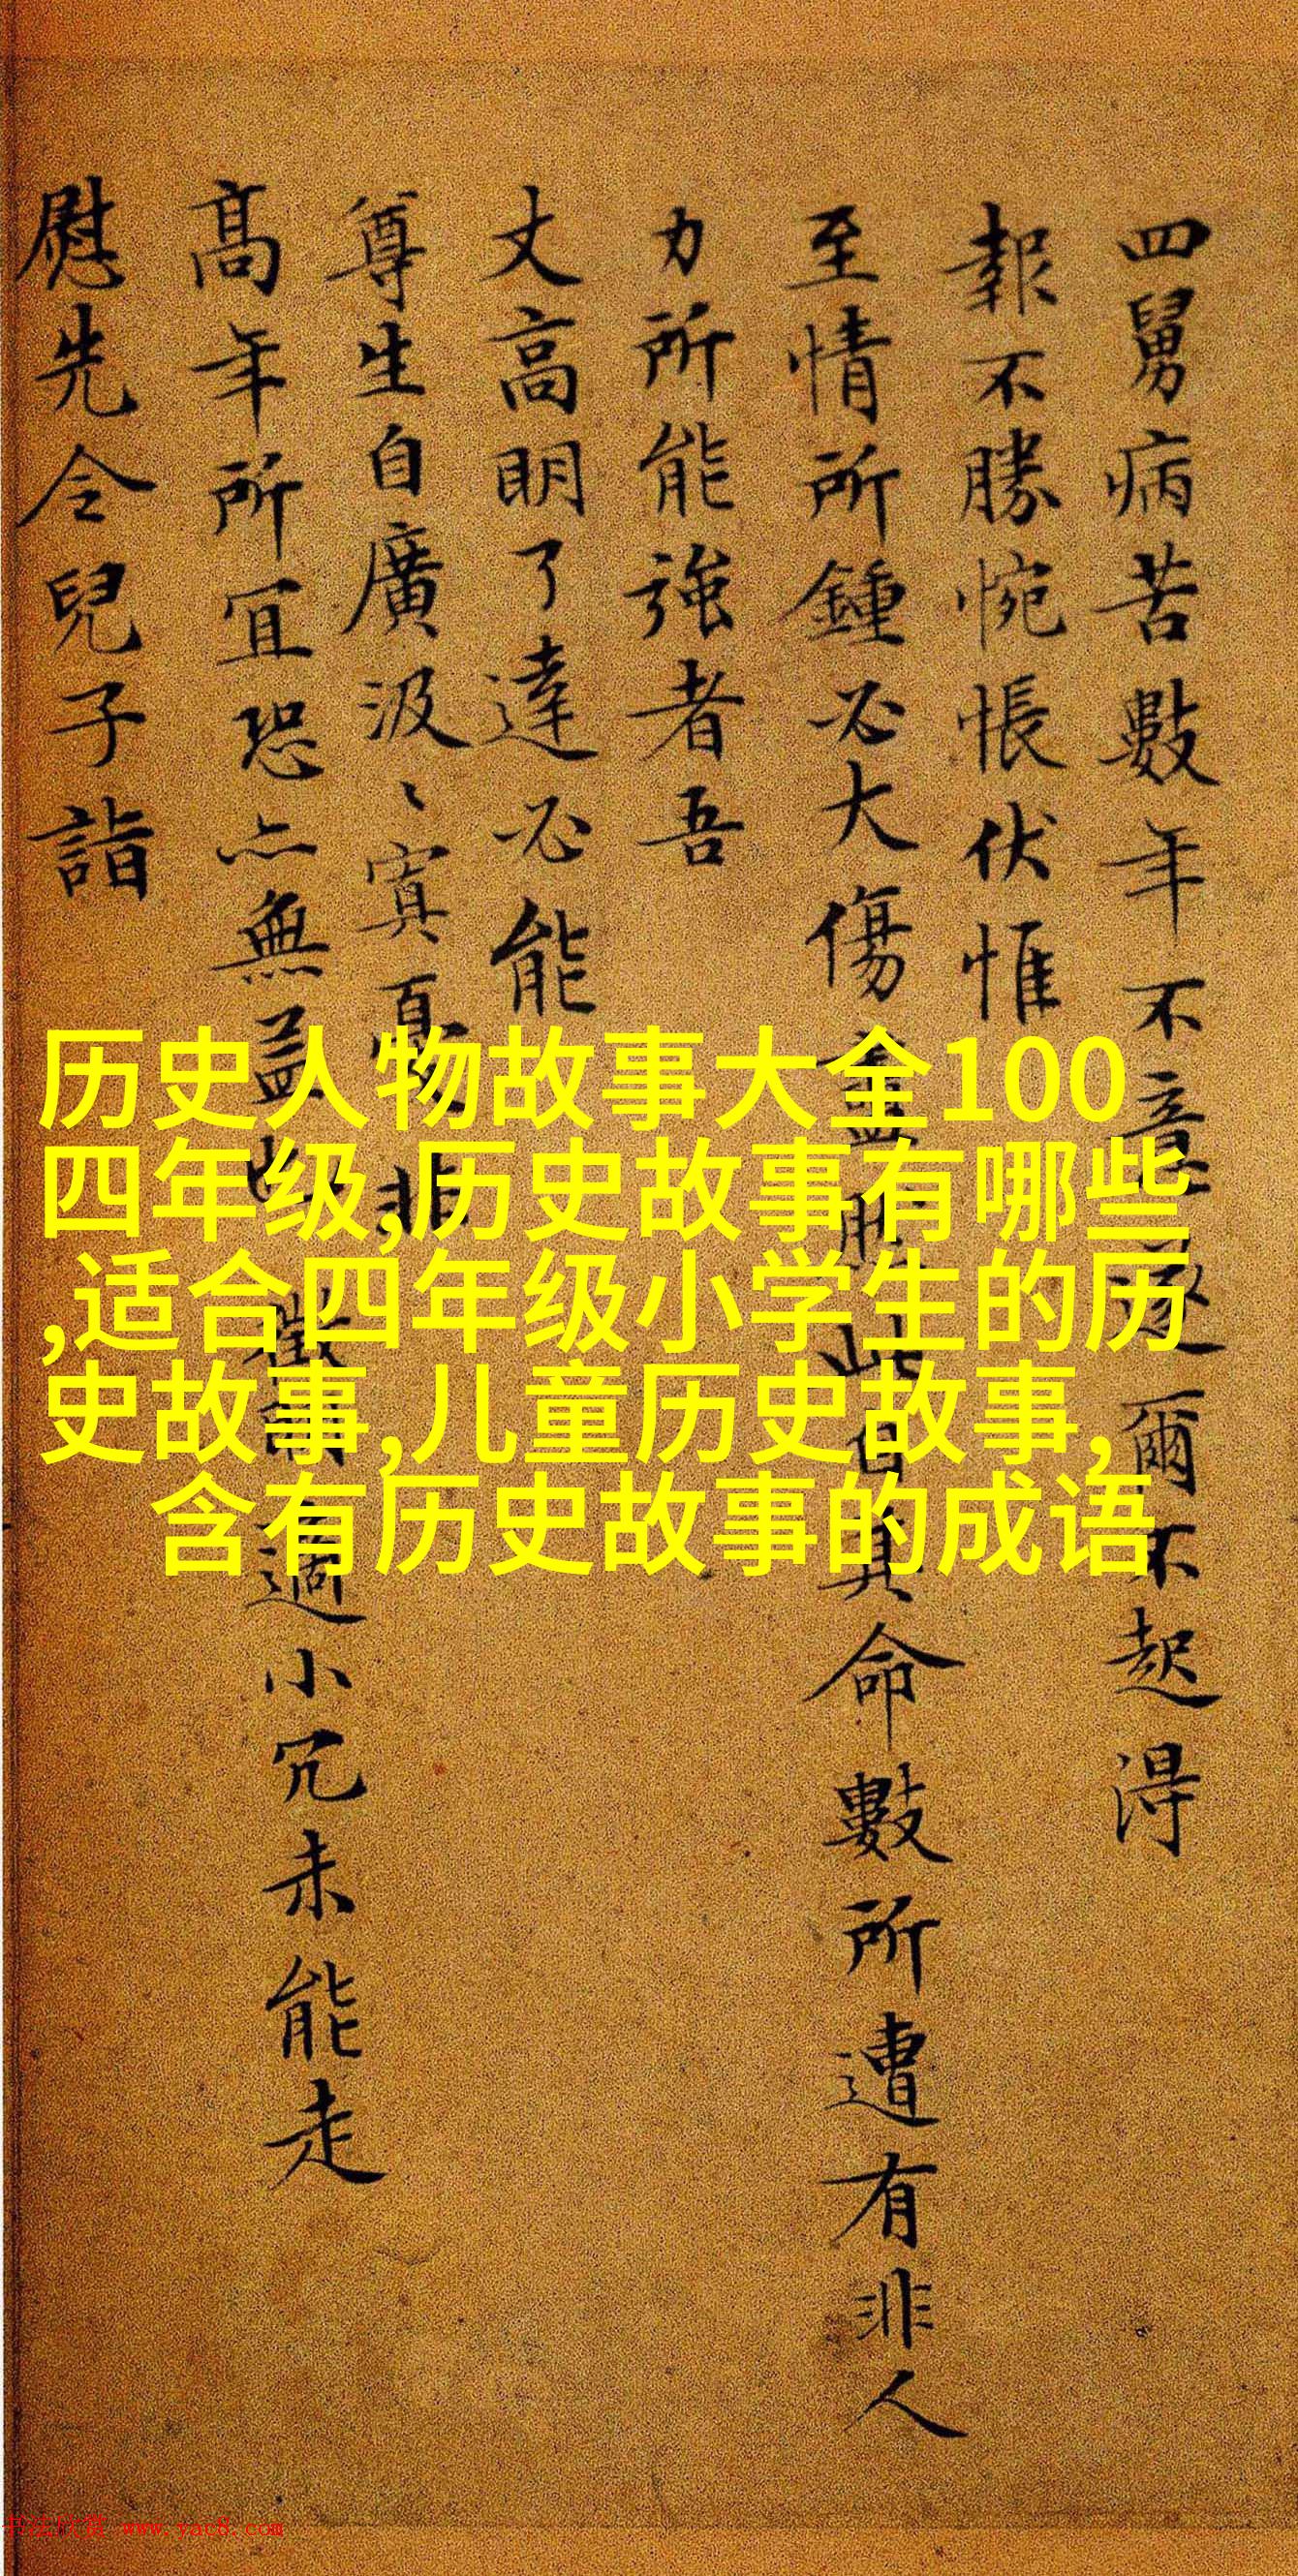 四舅病苦數年不意遂爾不起得
報不勝惋悵伏惟
至情所鍾必大傷此自其命數所遭有非人
力所能強者吾
丈高明了達必能
尊生自廣汲〻寘憂非
高年所宜恐亦無益也徵明適小冗未能走
慰先令兒子詣
历史人物故事大全100
四年级,历史故事有哪些
,适合四年级小学生的历
史故事,儿童历史故事,
含有历史故事的成语
书法欣赏 www.yac8.com